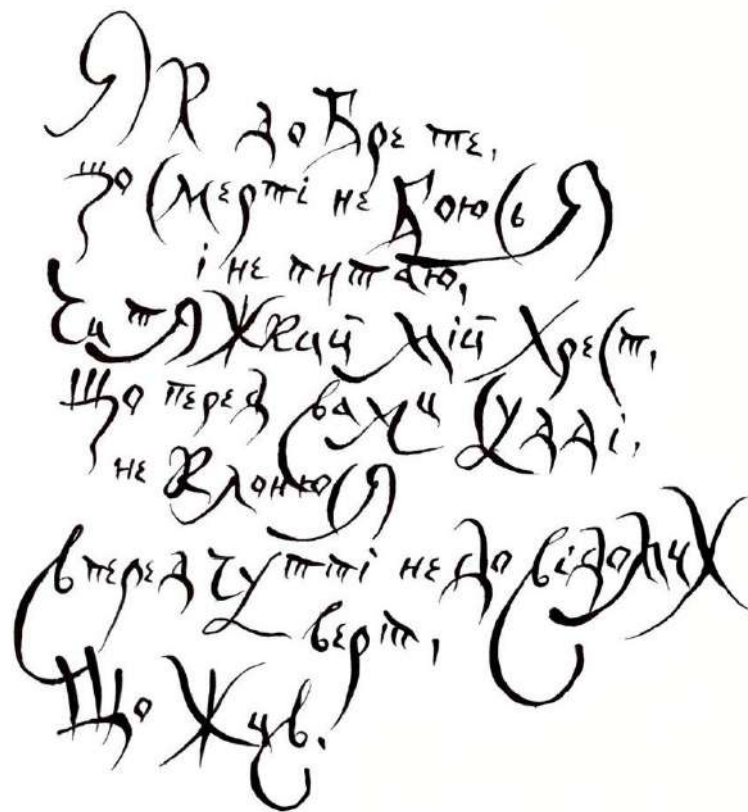 Як добре те,
що смерті не боюсь я
і не питаю,
чи тяжкий мій хрест,
що перед вами, судді,
не клонюся
в передчутті недовідомих
верст,
Що жив.